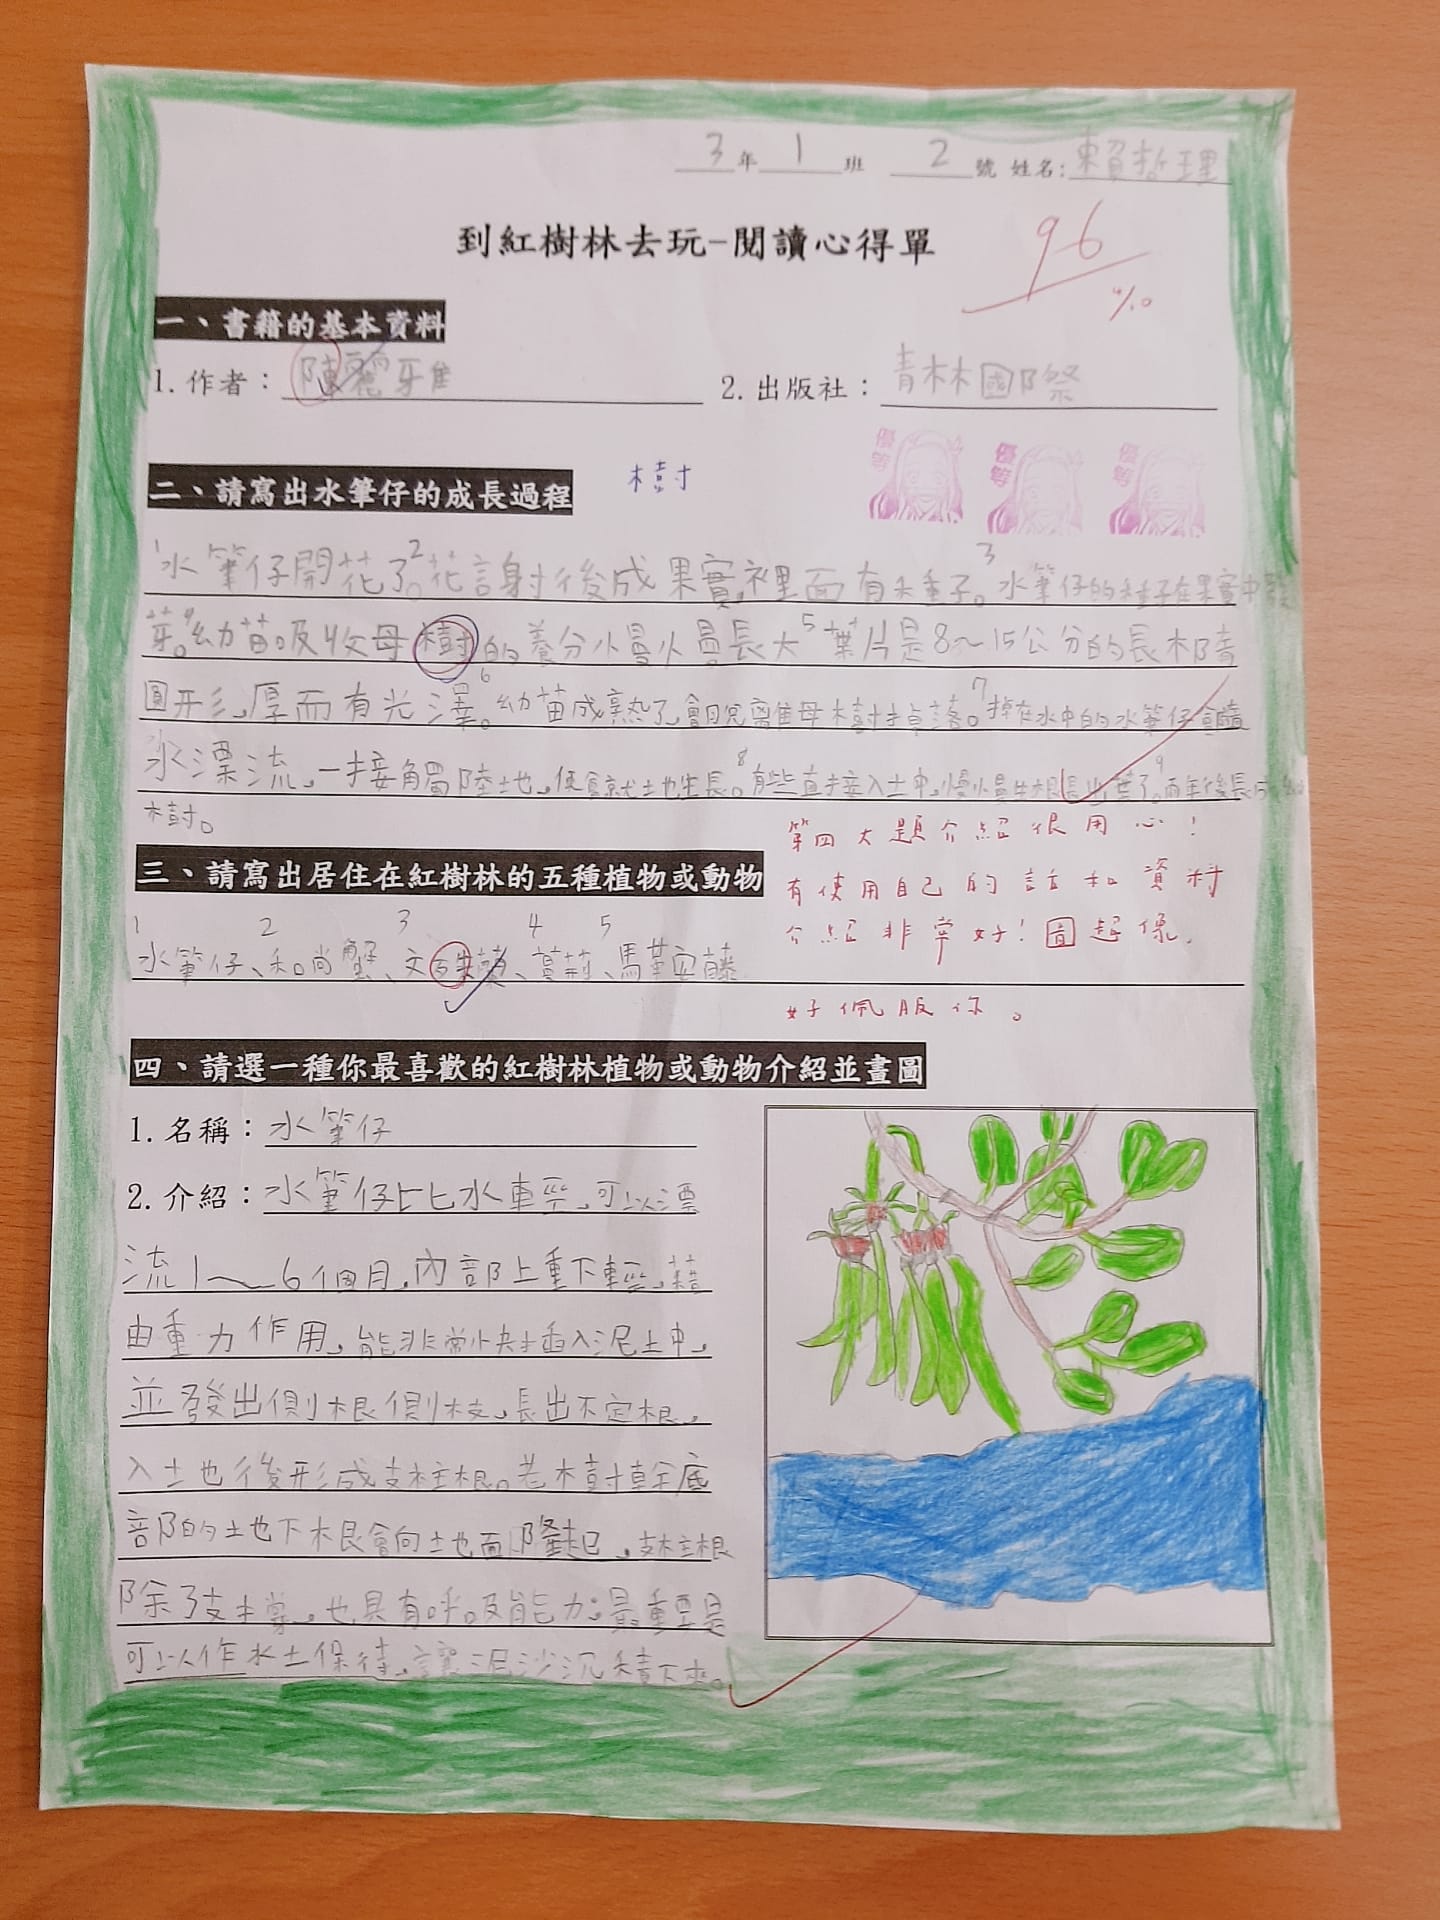 3年1班 2號 姓名:賴哲理
到紅樹林去玩-閱讀心得單
96
一、書籍的基本資料
1.作者：陳麗雅
2.出版社：青林國際
優等 優等 優等
二、請寫出水筆仔的成長過程
樹
1水筆仔開花了。2花謝後成果實,裡面有種子。3水筆仔的種子在果實中發
芽。4幼苗吸收母樹的養分慢慢長大。5葉片是8~15公分的長橢
圓形,厚而有光澤。6幼苗成熟了,會脫離母樹掉落。7掉在水中的水筆仔會隨
水漂流,一接觸陸地,便會就土地生長。8有些直接入土中,慢慢生根長出葉了。9兩年後長成
樹。
三、請寫出居住在紅樹林的五種植物或動物
1 2 3 4 5
水筆仔、和尚蟹、文蛛蘭、黃荊、馬鞍藤
第四大題介紹很用心!
有使用自己的話和資料
介紹非常好!圖超像,
好佩服你。
四、請選一種你最喜歡的紅樹林植物或動物介紹並畫圖
1.名稱：水筆仔
2.介紹：水筆仔比水輕,可以漂
流1~6個月,內部上重下輕,藉
由重力作用,能非常快插入泥土中,
並發出側根側枝,長出不定根,
入土也後形成支柱根。老樹幹底
部的土也下根會向土地面隆起,支柱根
除了支撐,也具有呼吸能力;最重要是
可以作水土保持,讓泥沙沉積下來。